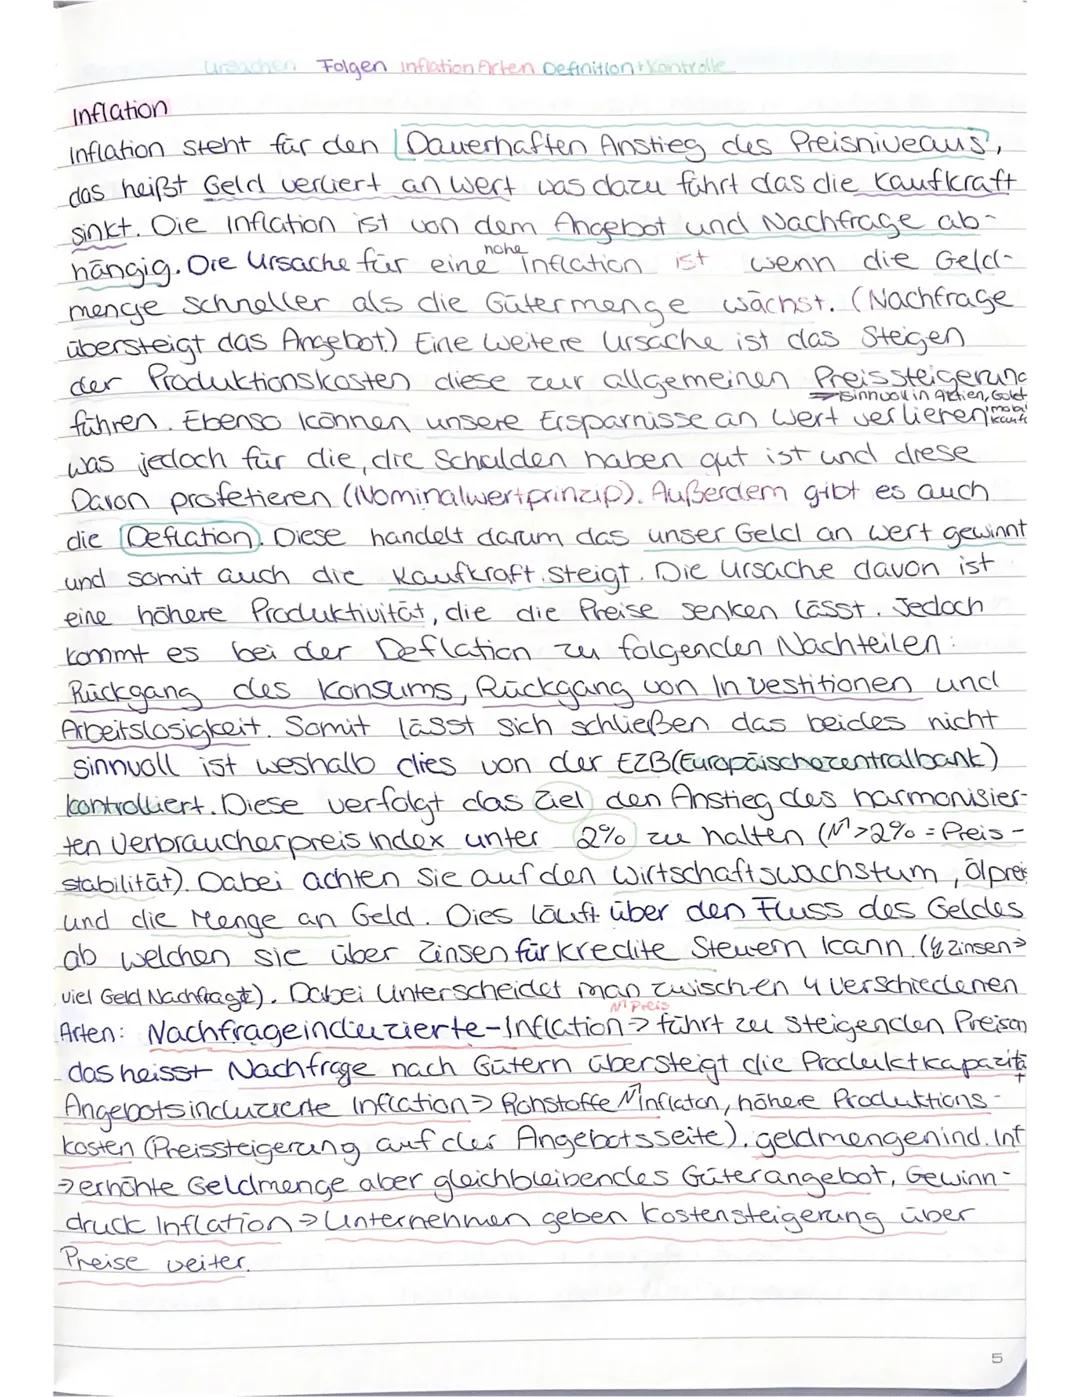 Ursachen Folgen Inflation Arten Definition+Kontrolle
Inflation
Inflation steht für den Dauerhaften Anstieg des Preisniveaus,
das heißt Geld verliert an Wert was dazu führt das die Kaufkraft
sinkt. Die Inflation ist von dem Angebot und Nachfrage ab-
hängig. Die Ursache für eine hohe Inflation ist wenn die Geld-
menge schneller als die Gütermenge wächst. (Nachfrage
übersteigt das Angebot.) Eine weitere Ursache ist das Steigen
der Produktionskosten diese zur allgemeinen Preissteigerung
=> Sinnvoll in Aktien, Gold
führen. Ebenso können unsere Ersparnisse an Wert verlieren
was jedoch für die, die Schulden haben gut ist und diese
Davon profetieren (Nominalwertprinzip). Außerdem gibt es auch
die Deflation. Diese handelt darum das unser Geld an Wert gewinnt
und somit auch die Kaufkraft steigt. Die Ursache davon ist
eine höhere Produktivität, die die Preise senken lässt. Jedoch
kommt es bei der Deflation zu folgenden Nachteilen:
Rückgang des Konsums, Rückgang von Investitionen und
Arbeitslosigkeit. Somit lässt sich schließen das beides nicht
sinnvoll ist weshalb dies von der EZB(Europäischezentralbank)
kontrolliert. Diese verfolgt das Ziel den Anstieg des harmonisier-
ten Verbraucherpreis Index unter 2% zu halten (↗>2% = Preis-
stabilität). Dabei achten sie auf den Wirtschaftswachstum, Ölpreis
und die Menge an Geld. Dies läuft über den Fluss des Geldes
ab welchen sie über Zinsen für Kredite Steuern kann. (↯Zinsen→
viel Geld Nachfragt). Dabei Unterscheidet man zwischen 4 Verschiedenen
↗ Preis
Arten: Nachfrageinduzierte-Inflation → führt zu steigenden Preisen
das heisst Nachfrage nach Gütern übersteigt die Produktkapazität
Angebotsinduzierte Inflation → Rohstoffe ↗ Inflaton, höhere Produktions-
kosten (Preissteigerung auf der Angebotsseite). geldmengenind. Inf
→ erhöhte Geldmenge aber gleichbleibendes Güterangebot, Gewinn-
druck Inflation → Unternehmen geben Kostensteigerung über
Preise weiter.
5